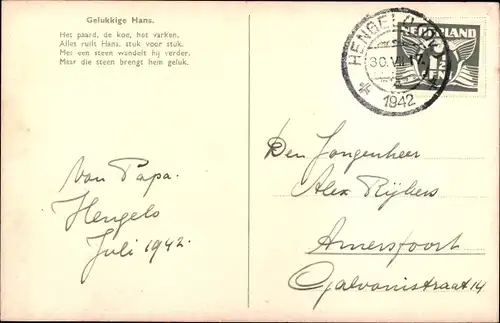 Gelukkige Hans.
Het paard, de koe, het varken,
Alles ruilt Hans, stuk voor stuk.
Met een steen wandelt hij verder.
Maar die steen brengt hem geluk.
Van Papa.
Hengelo
Juli 1942.
HENGELO
30.VII 17
1942
NEDERLAND
Den Jongenheer
Alex Rijbers
Amersfoort
Galvanistraat 14